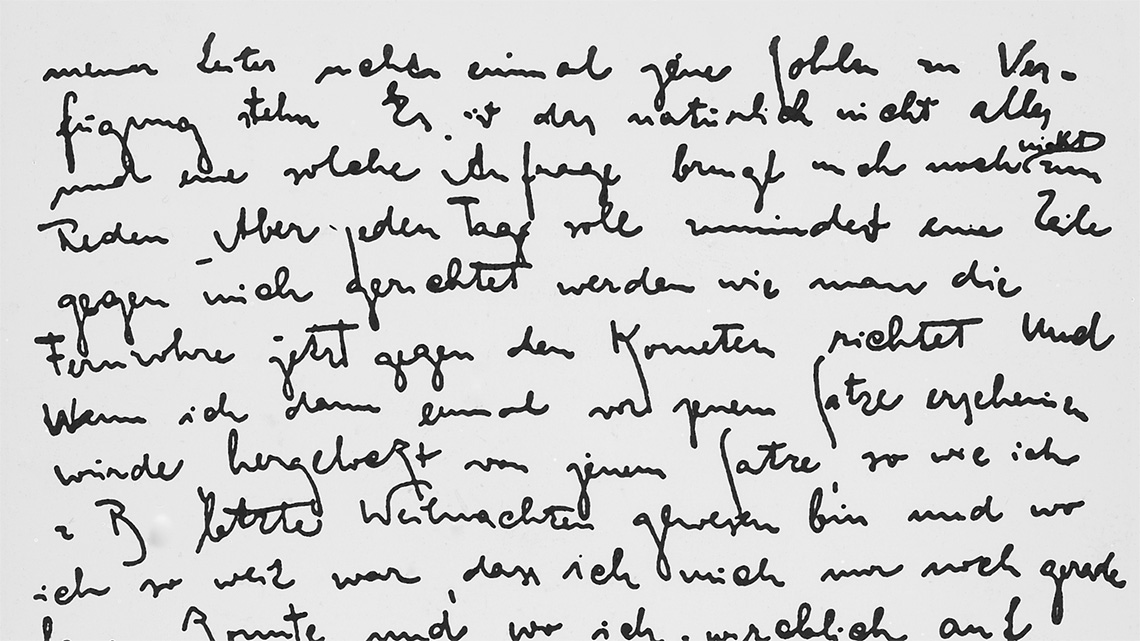 meiner Leiter nicht einmal jene Sohlen zur Ver-
fügung stehn Es ist das natürlich nicht alles
und eine solche Anfrage bringt mich noch nicht zum
Reden Aber jeden Tag soll mindest eine Zeile
gegen mich gerichtet werden wie man die
Fernrohre jetzt gegen den Kometen richtet Und
Wenn ich dann einmal vor jenem Satze erscheinen
würde hergelockt von jenem Satze, so wie ich
z B letzte Weihnachten gewesen bin und wo
ich so weit war, dass ich mich nur noch gerade
konnte und wo ich wirklich auf